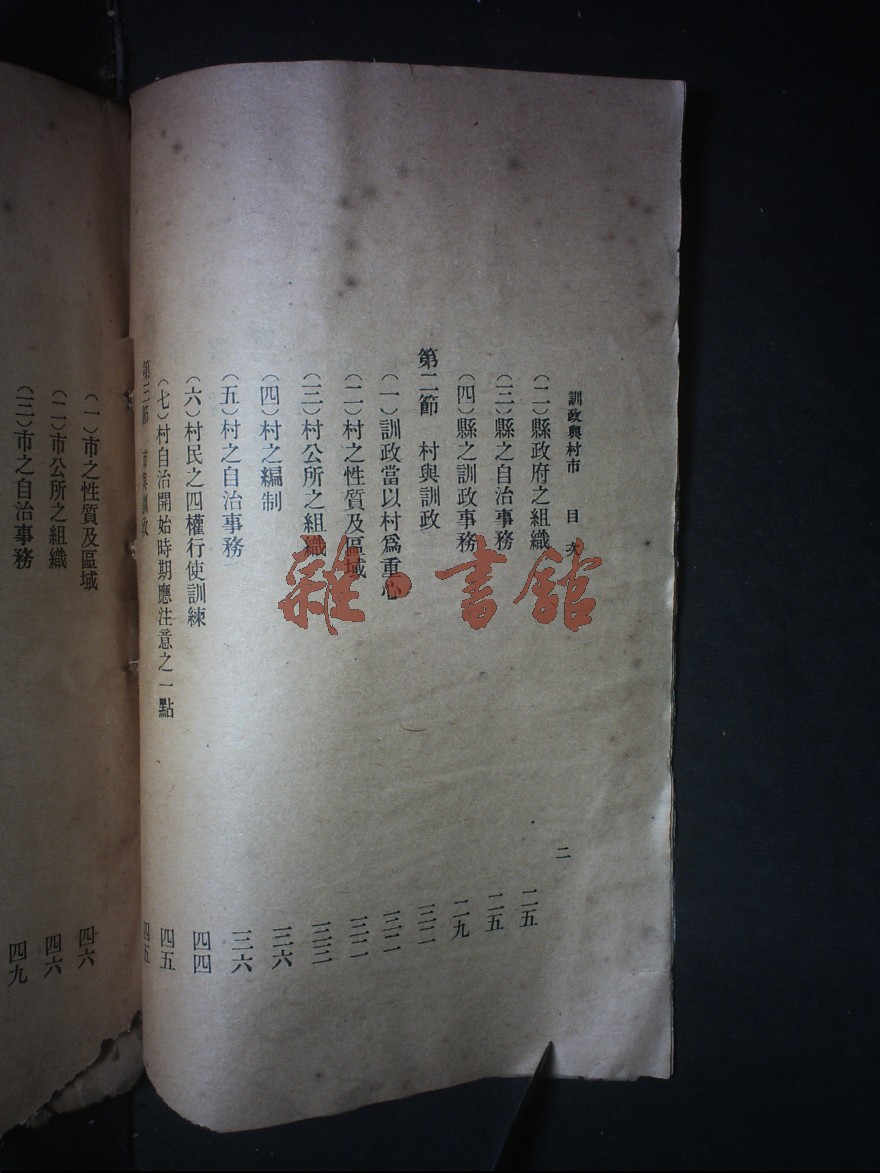 訓政與村市　目次
二
（二）縣政府之組織　二五
（三）縣之自治事務　二五
（四）縣之訓政事務　二九
第二節　村與訓政　三二
（一）訓政當以村爲重心　三二
（二）村之性質及區域　三二
（三）村公所之組織　三三
（四）村之編制　三六
（五）村之自治事務　三六
（六）村民之四權行使訓練　四四
（七）村自治開始時期應注意之一點　四五
第三節　市與訓政　四五
（一）市之性質及區域　四六
（二）市公所之組織　四六
（三）市之自治事務　四九
雜·書館